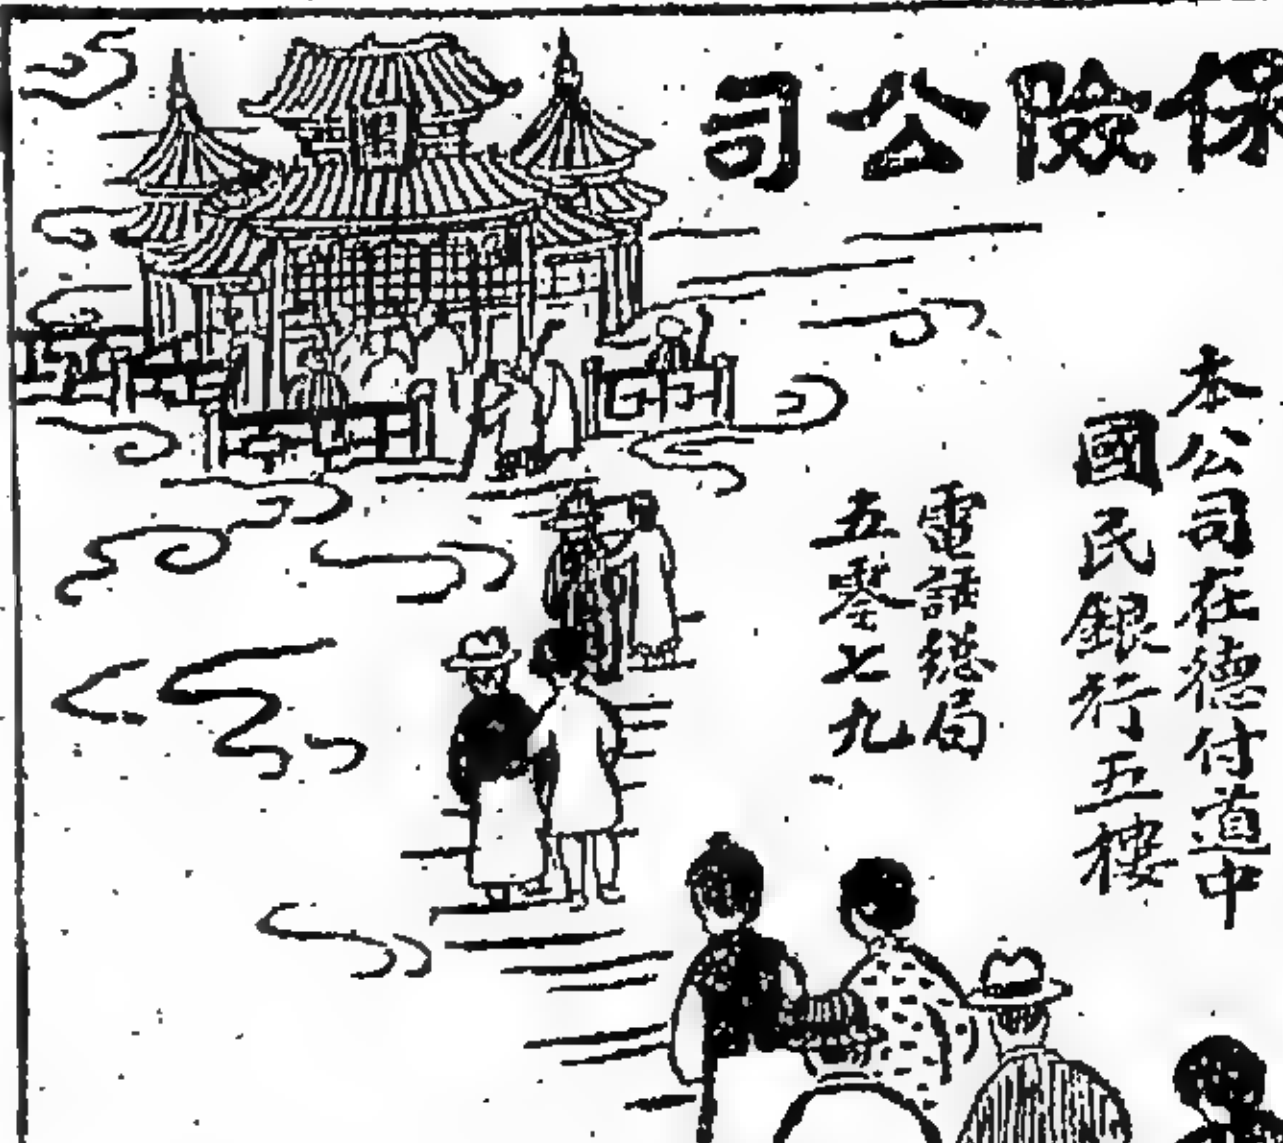 保險公司
本公司在德付道中
國民銀行五樓
電話總局
五零七九